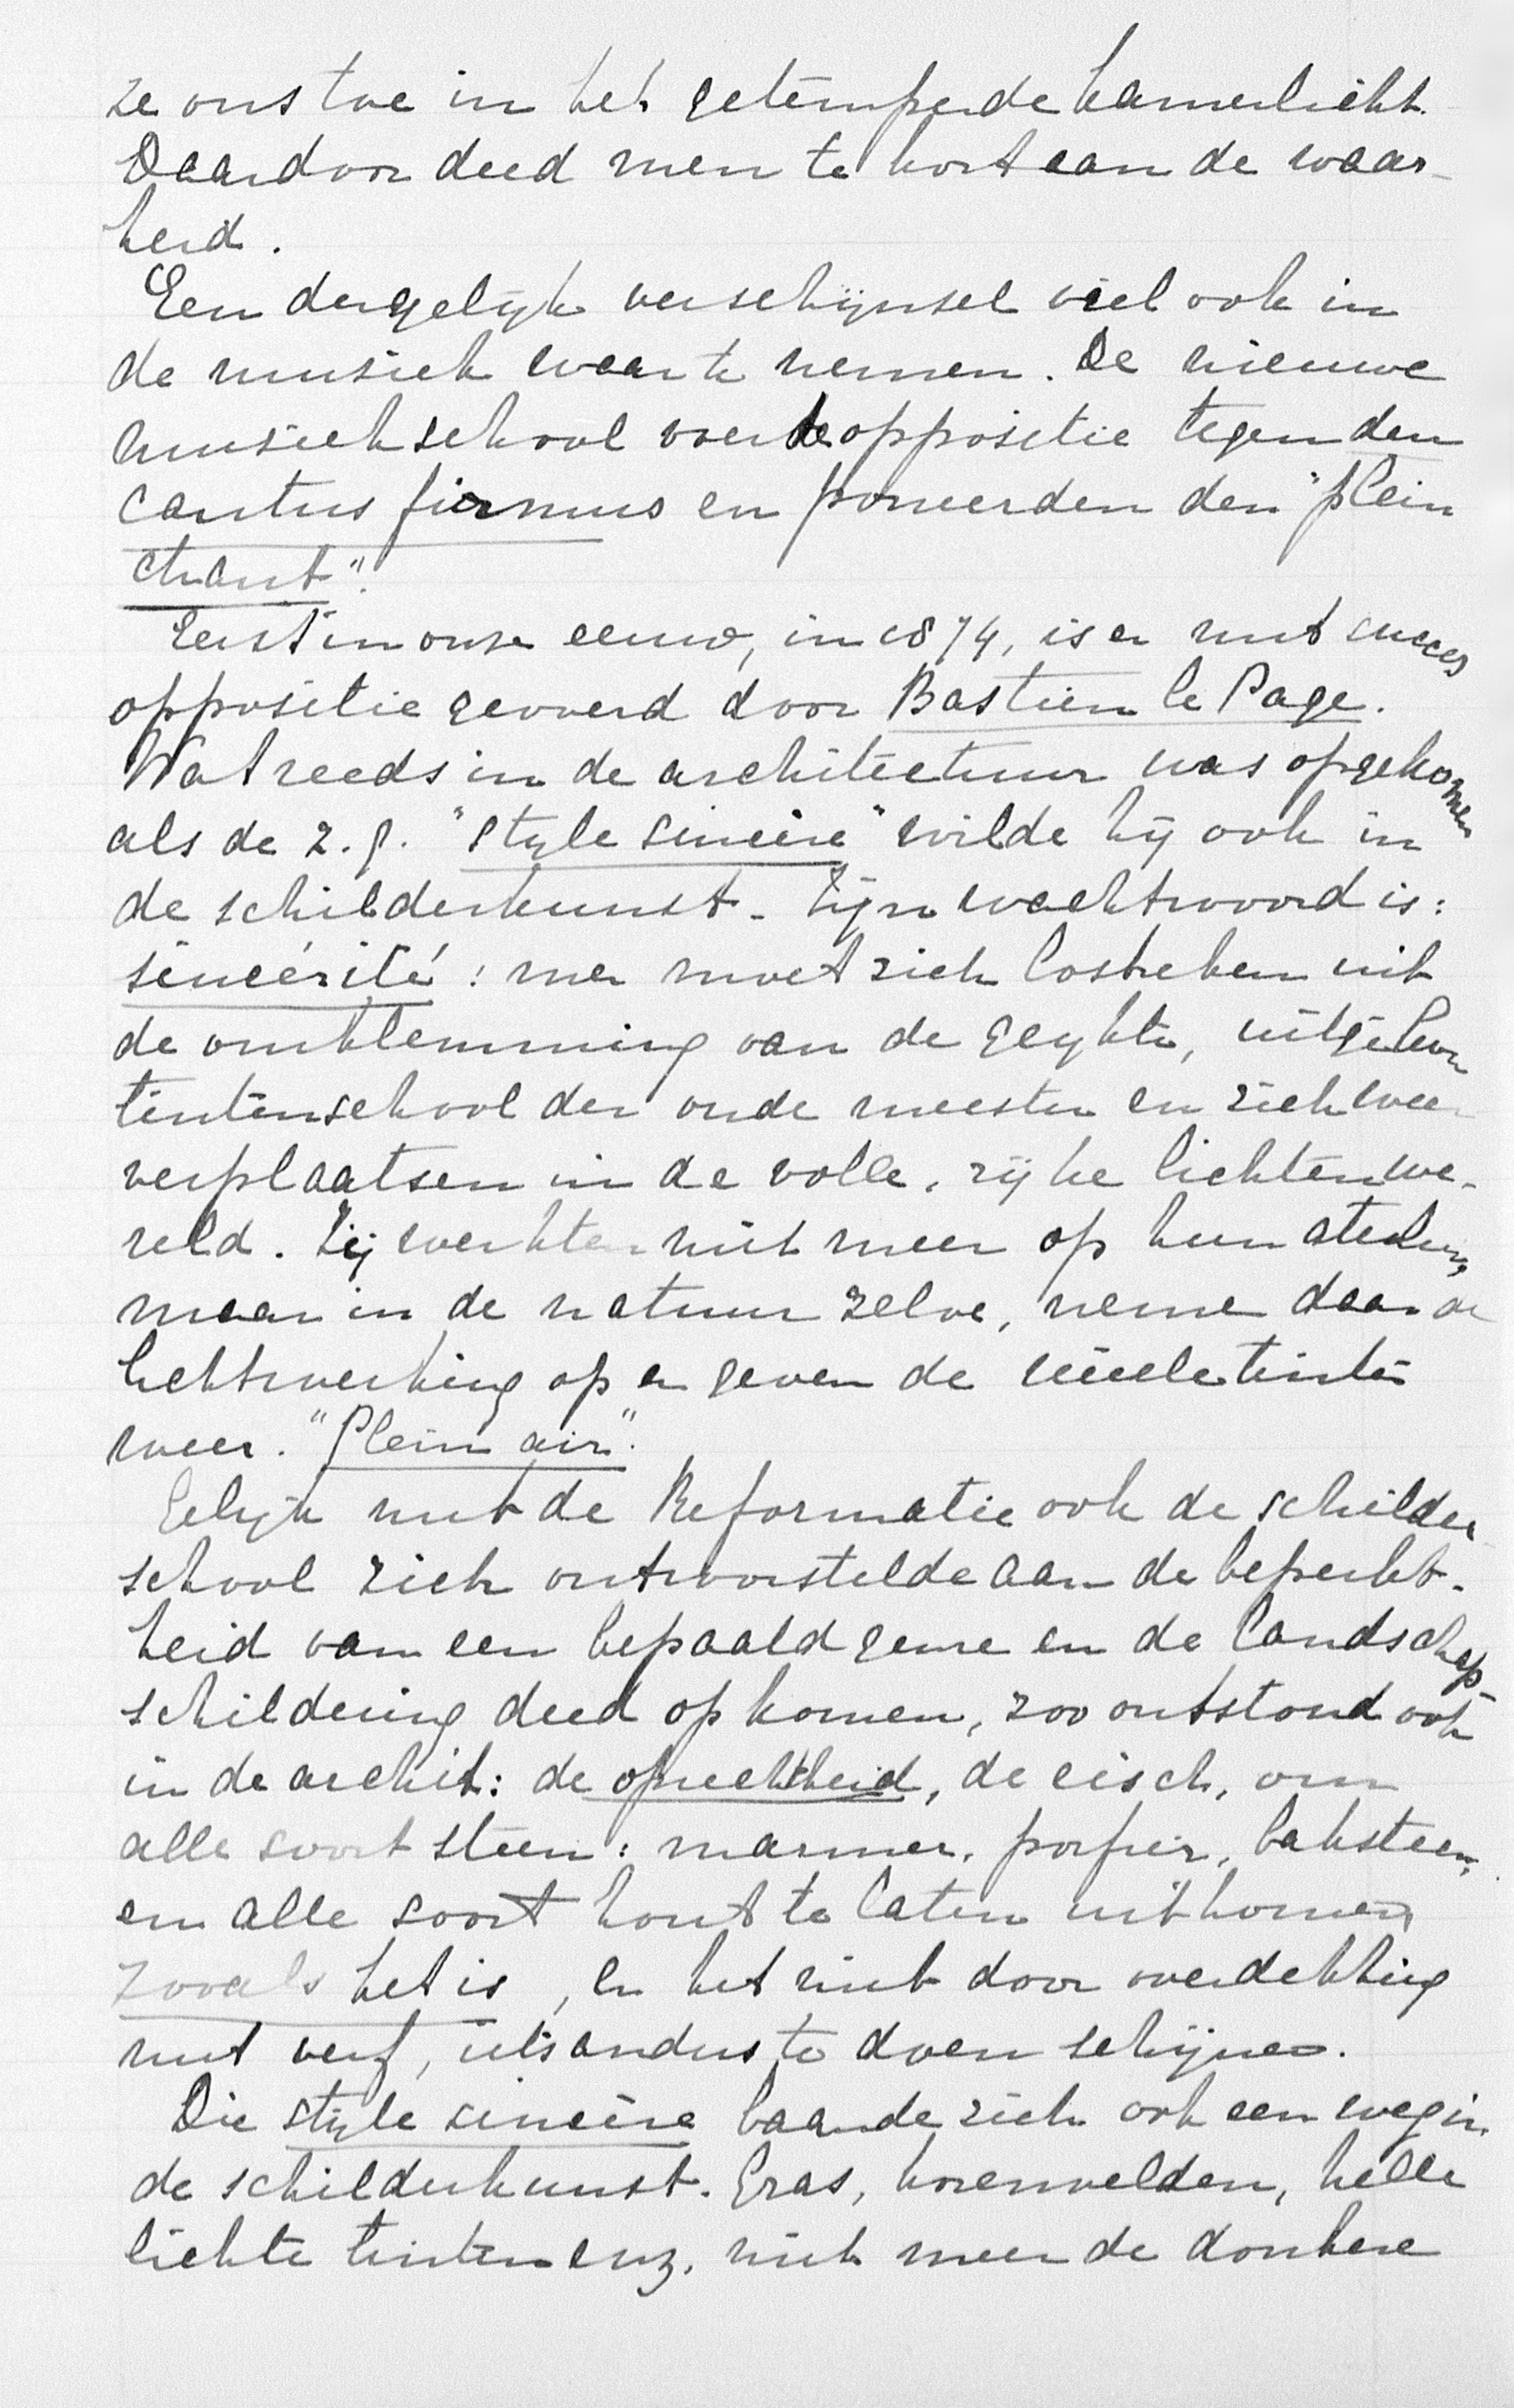 ze ons toe in het getemperde kamerlicht.
Daardoor deed men te kort aan de waar-
heid.
Een dergelijk verschijnsel viel ook in
de musiek waar te nemen. De nieuwe
musiekschool voerde oppositie tegen den
cantus firmus en poneerden den "plein
chant".
Eerst in onze eeuw, in 1874, is er met succes
oppositie gevoerd door Bastien le Page.
Wat reeds in de architectuur was opgekomen
als de z.g. "style sincère" wilde hij ook in
de schilderkunst. Zijn wachtwoord is:
sincérité: men moet zich lostrekken uit
de omklemming van de geijkte,
tintenschool der oude meesters en zich weer
verplaatsen in de volle, rijke lichtenwe-
reld. Zij werkten niet meer op hun ateliers,
maar in de natuur zelve, nemen daar de
lichtwerking op en geven de reëele tinten
weer. "Plein air".
Gelijk met de Reformatie ook de schilder
school zich ontworstelde aan de beperkt-
heid van een bepaald genre en de landschap-
schildering deed opkomen, zoo ontstond ook
in de archit: de oprechtheid, de eisch, om
alle soort steen: marmer, porfier, baksteen,
en alle soort hout te laten uitkomen
zooals het is, en het niet door overdekking
met verf, iets anders te doen schijnen.
Die style sincère baande zich ook een weg in
de schilderkunst. Gras, korenvelden, helle
lichte tinten enz. niet meer de donkere